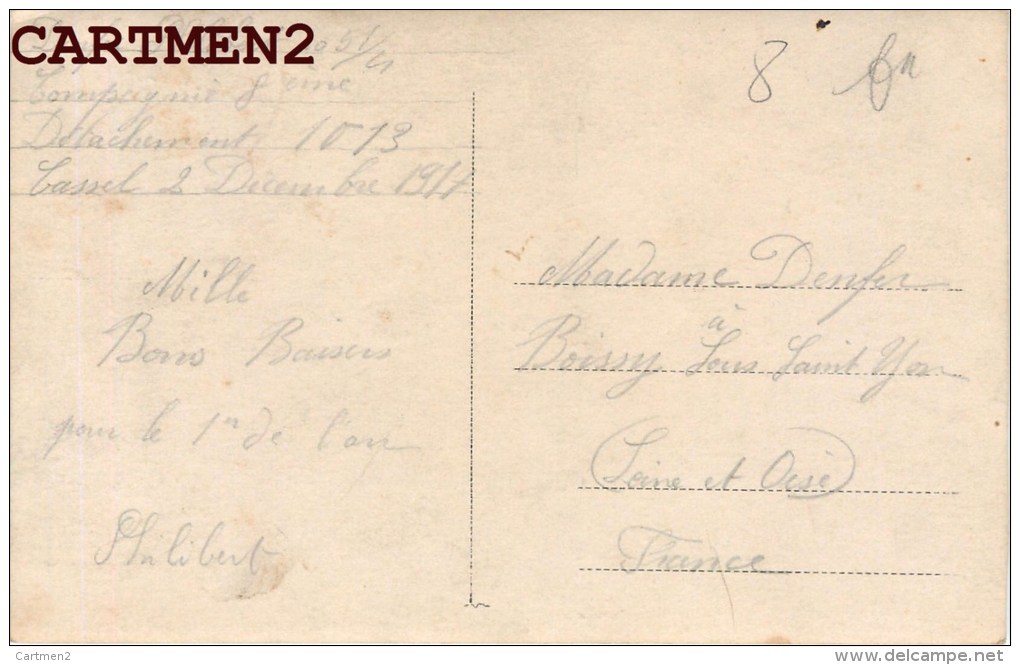 CARTMEN2
Compagnie 8eme
Détachement 1013
Cassel 2 Décembre 1917
Mille
Bons Baisers
pour le 1er de l'an
Philibert
8
Madame Denfer
à
Boissy Sous Saint Yon
(Seine et Oise)
France
Cartmen2
delcampe.net